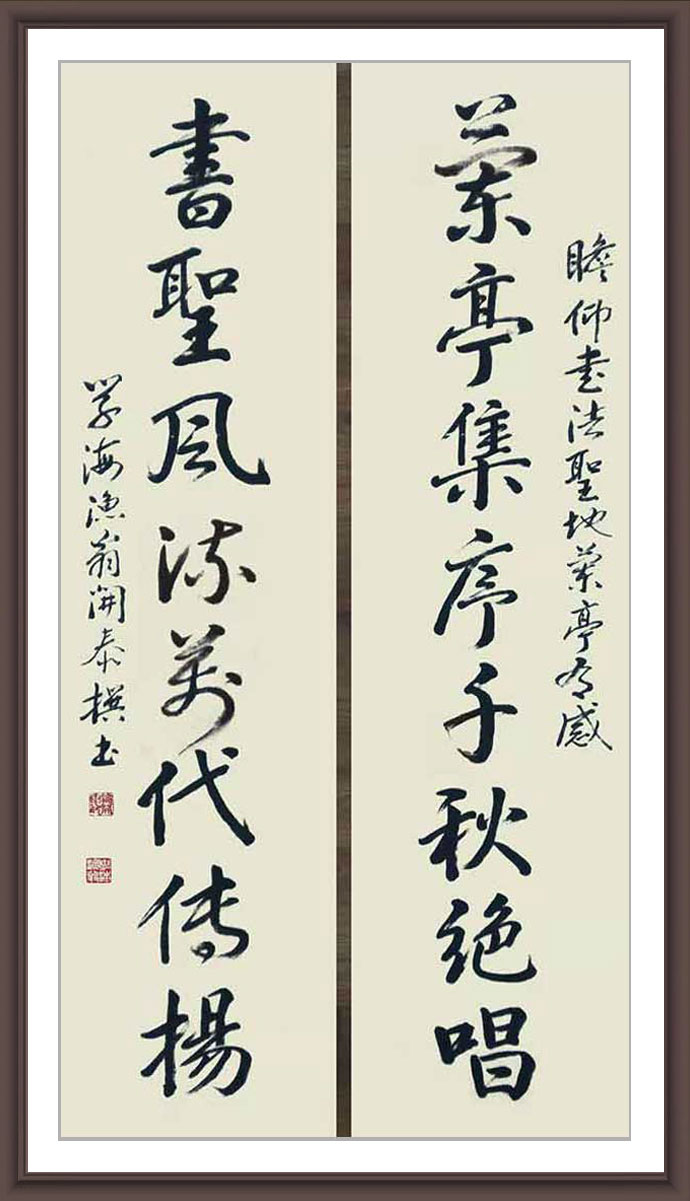 瞻仰書法聖地蘭亭有感
蘭亭集序千秋絕唱
書聖風流萬代傳揚
學海漁翁開泰撰書